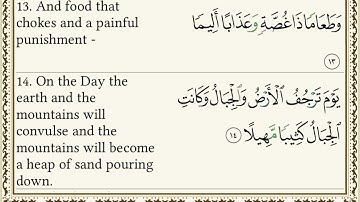 13. And food that
chokes and a painful
punishment -
وَطَعَامًا ذَا غُصَّةٍ وَعَذَابًا أَلِيمًا
١٣
14. On the Day the
earth and the
mountains will
convulse and the
mountains will become
a heap of sand pouring
down.
يَوْمَ تَرْجُفُ الْأَرْضُ وَالْجِبَالُ وَكَانَتِ
الْجِبَالُ كَثِيبًا مَّهِيلًا ١٤